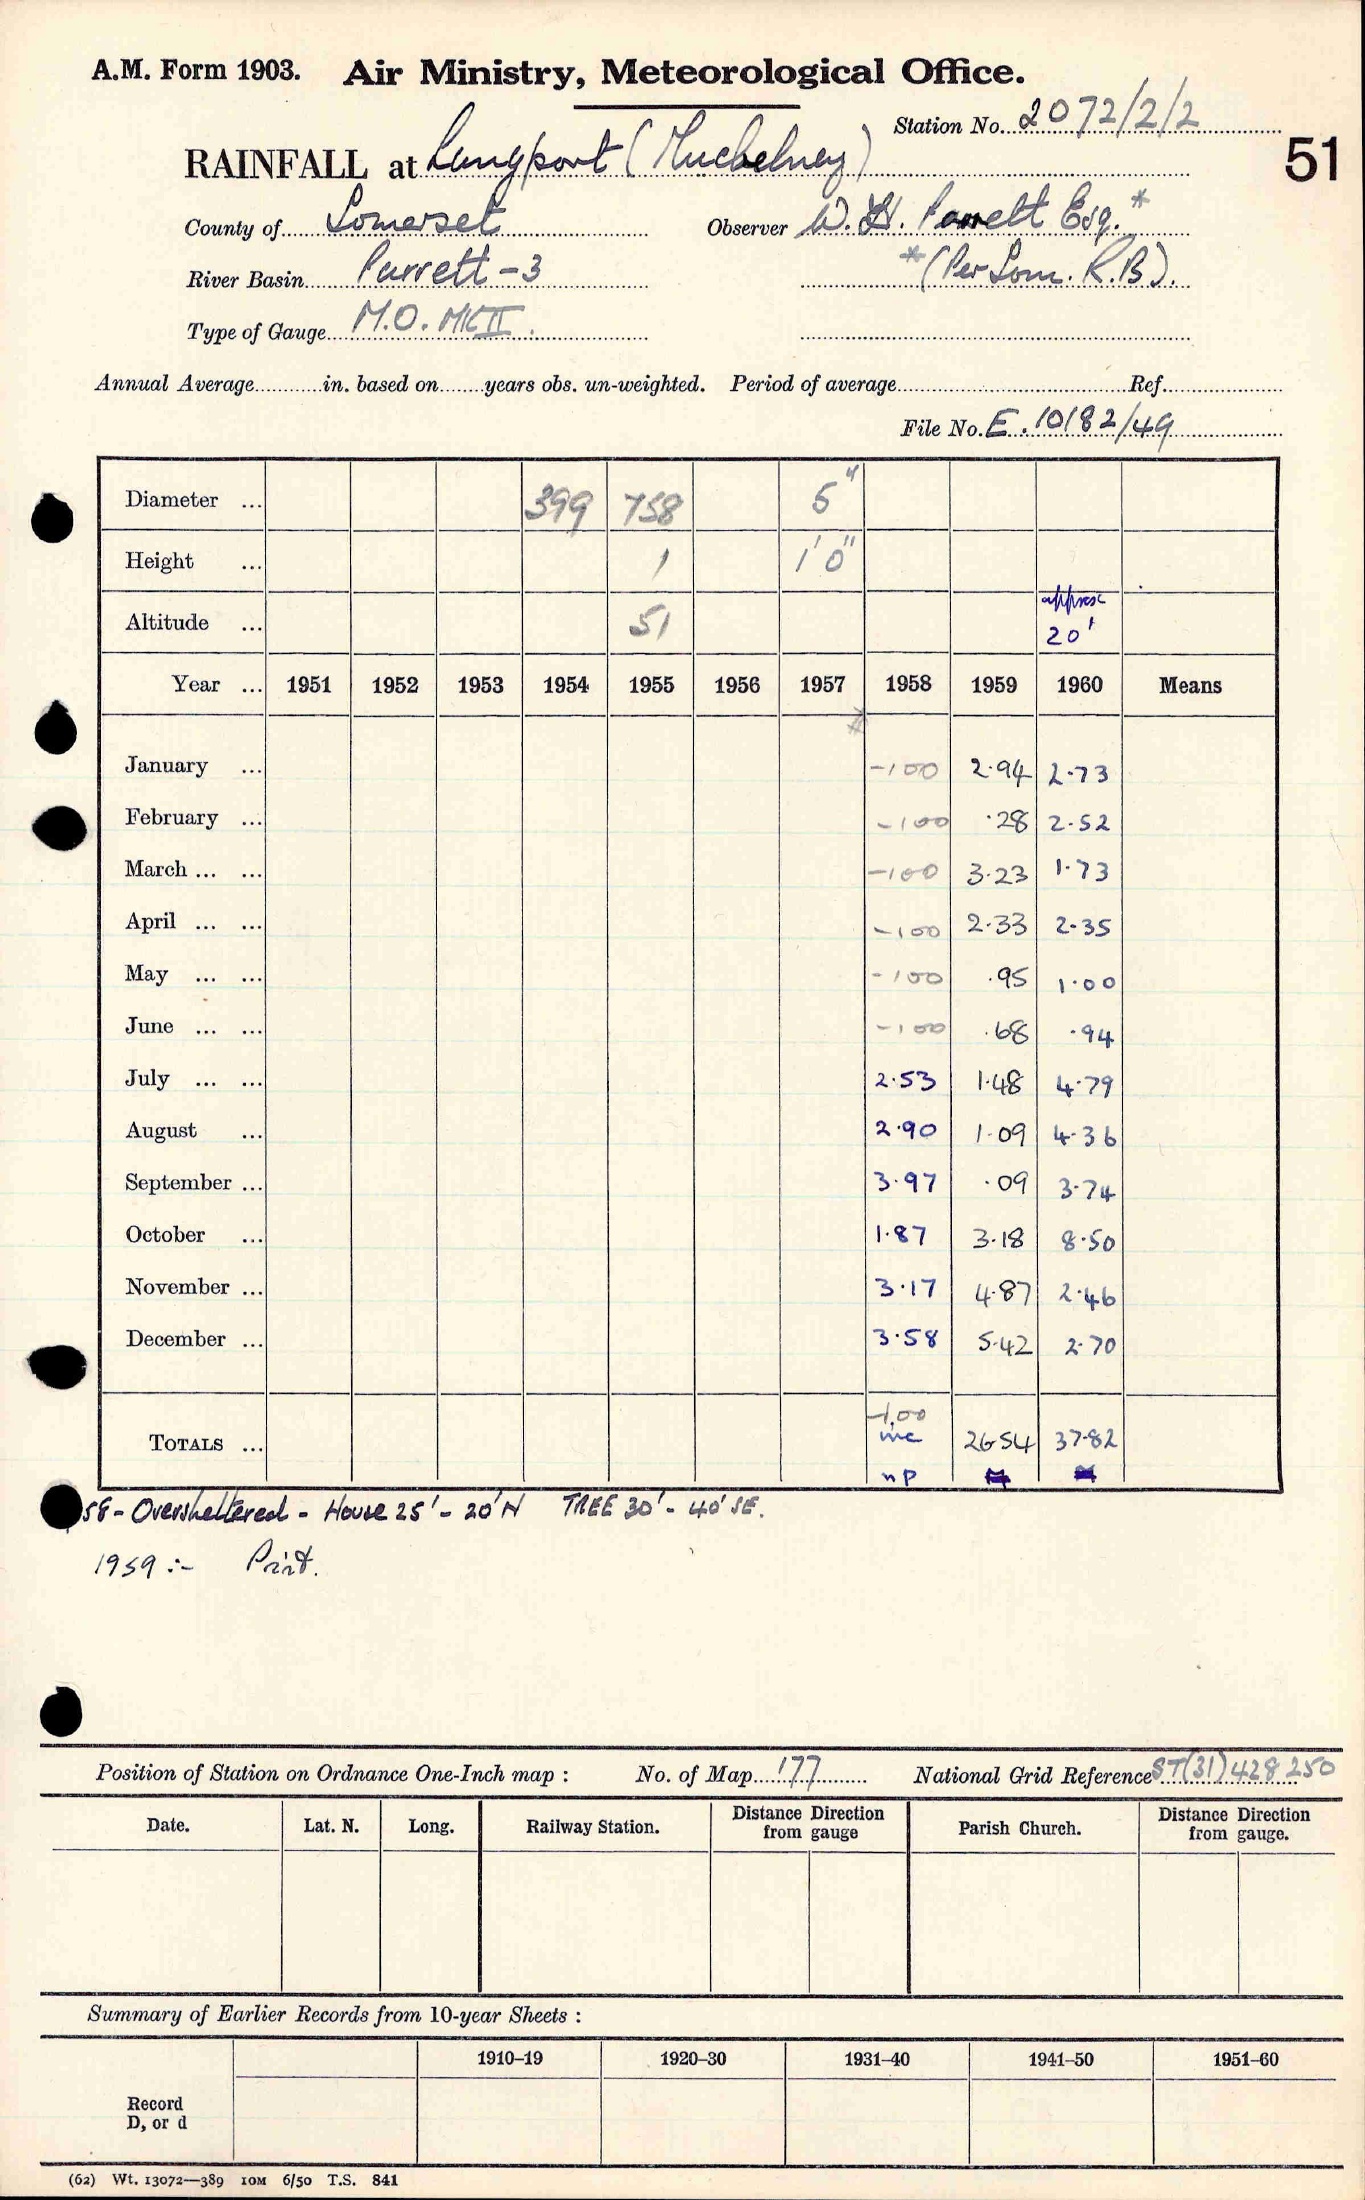 A.M. Form 1903. Air Ministry, Meteorological Office.
Station No. 2072/2/2
51
RAINFALL at Langport (Muchelney)
County of Somerset Observer W. H. Parrett Esq. *
River Basin Parrett - 3 * (Per Som. R.B).
Type of Gauge M.O. MK II.
Annual Average in. based on years obs. un-weighted. Period of average Ref.
File No. E.10182/49
Diameter ... 399 758 5"
Height ... 1 1' 0"
Altitude ... 51 approx 20'
Year ... 1951 1952 1953 1954 1955 1956 1957 1958 1959 1960 Means
January ... -100 2.94 2.73
February ... -100 .28 2.52
March ... ... -100 3.23 1.73
April ... ... -100 2.33 2.35
May ... ... -100 .95 1.00
June ... ... -100 .68 .94
July ... ... 2.53 1.48 4.79
August ... 2.90 1.09 4.36
September ... 3.97 .09 3.74
October ... 1.87 3.18 8.50
November ... 3.17 4.87 2.46
December ... 3.58 5.42 2.70
-1.00
TOTALS ... inc 26.54 37.82
np
58 - Oversheltered - House 25' - 20' N TREE 30' - 40' SE.
1959 :- Print.
Position of Station on Ordnance One-Inch map : No. of Map 177 National Grid Reference ST(31) 428 250
Date. Lat. N. Long. Railway Station. Distance Direction from gauge Parish Church. Distance Direction from gauge.
Summary of Earlier Records from 10-year Sheets :
1910–19 1920–30 1931–40 1941–50 1951–60
Record
D, or d
(62) Wt. 13072—389 10M 6/50 T.S. 841